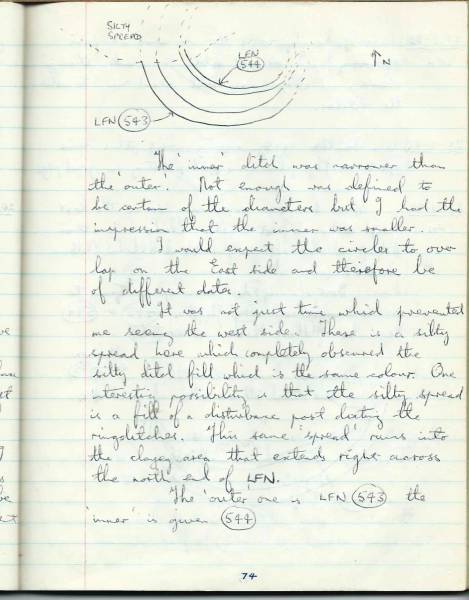 SILTY
SPREAD
LFN
544
N
LFN 543
The 'inner' ditch was narrower than
the 'outer'. Not enough was defined to
be certain of the diameters but I had the
impression that the inner was smaller.
I would expect the circles to over
lap on the East side and therefore be
of different dates.
It was not just time which prevented
me seeing the west side. There is a silty
spread here which completely obscured the
silty ditch fill which is the same colour. One
interesting possibility is that the silty spread
is a fill of a disturbance post dating the
ringditches. This same 'spread' runs into
the clayey area that extends right across
the north end of LFN.
The 'outer' one is LFN 543 the
'inner' is given 544
74